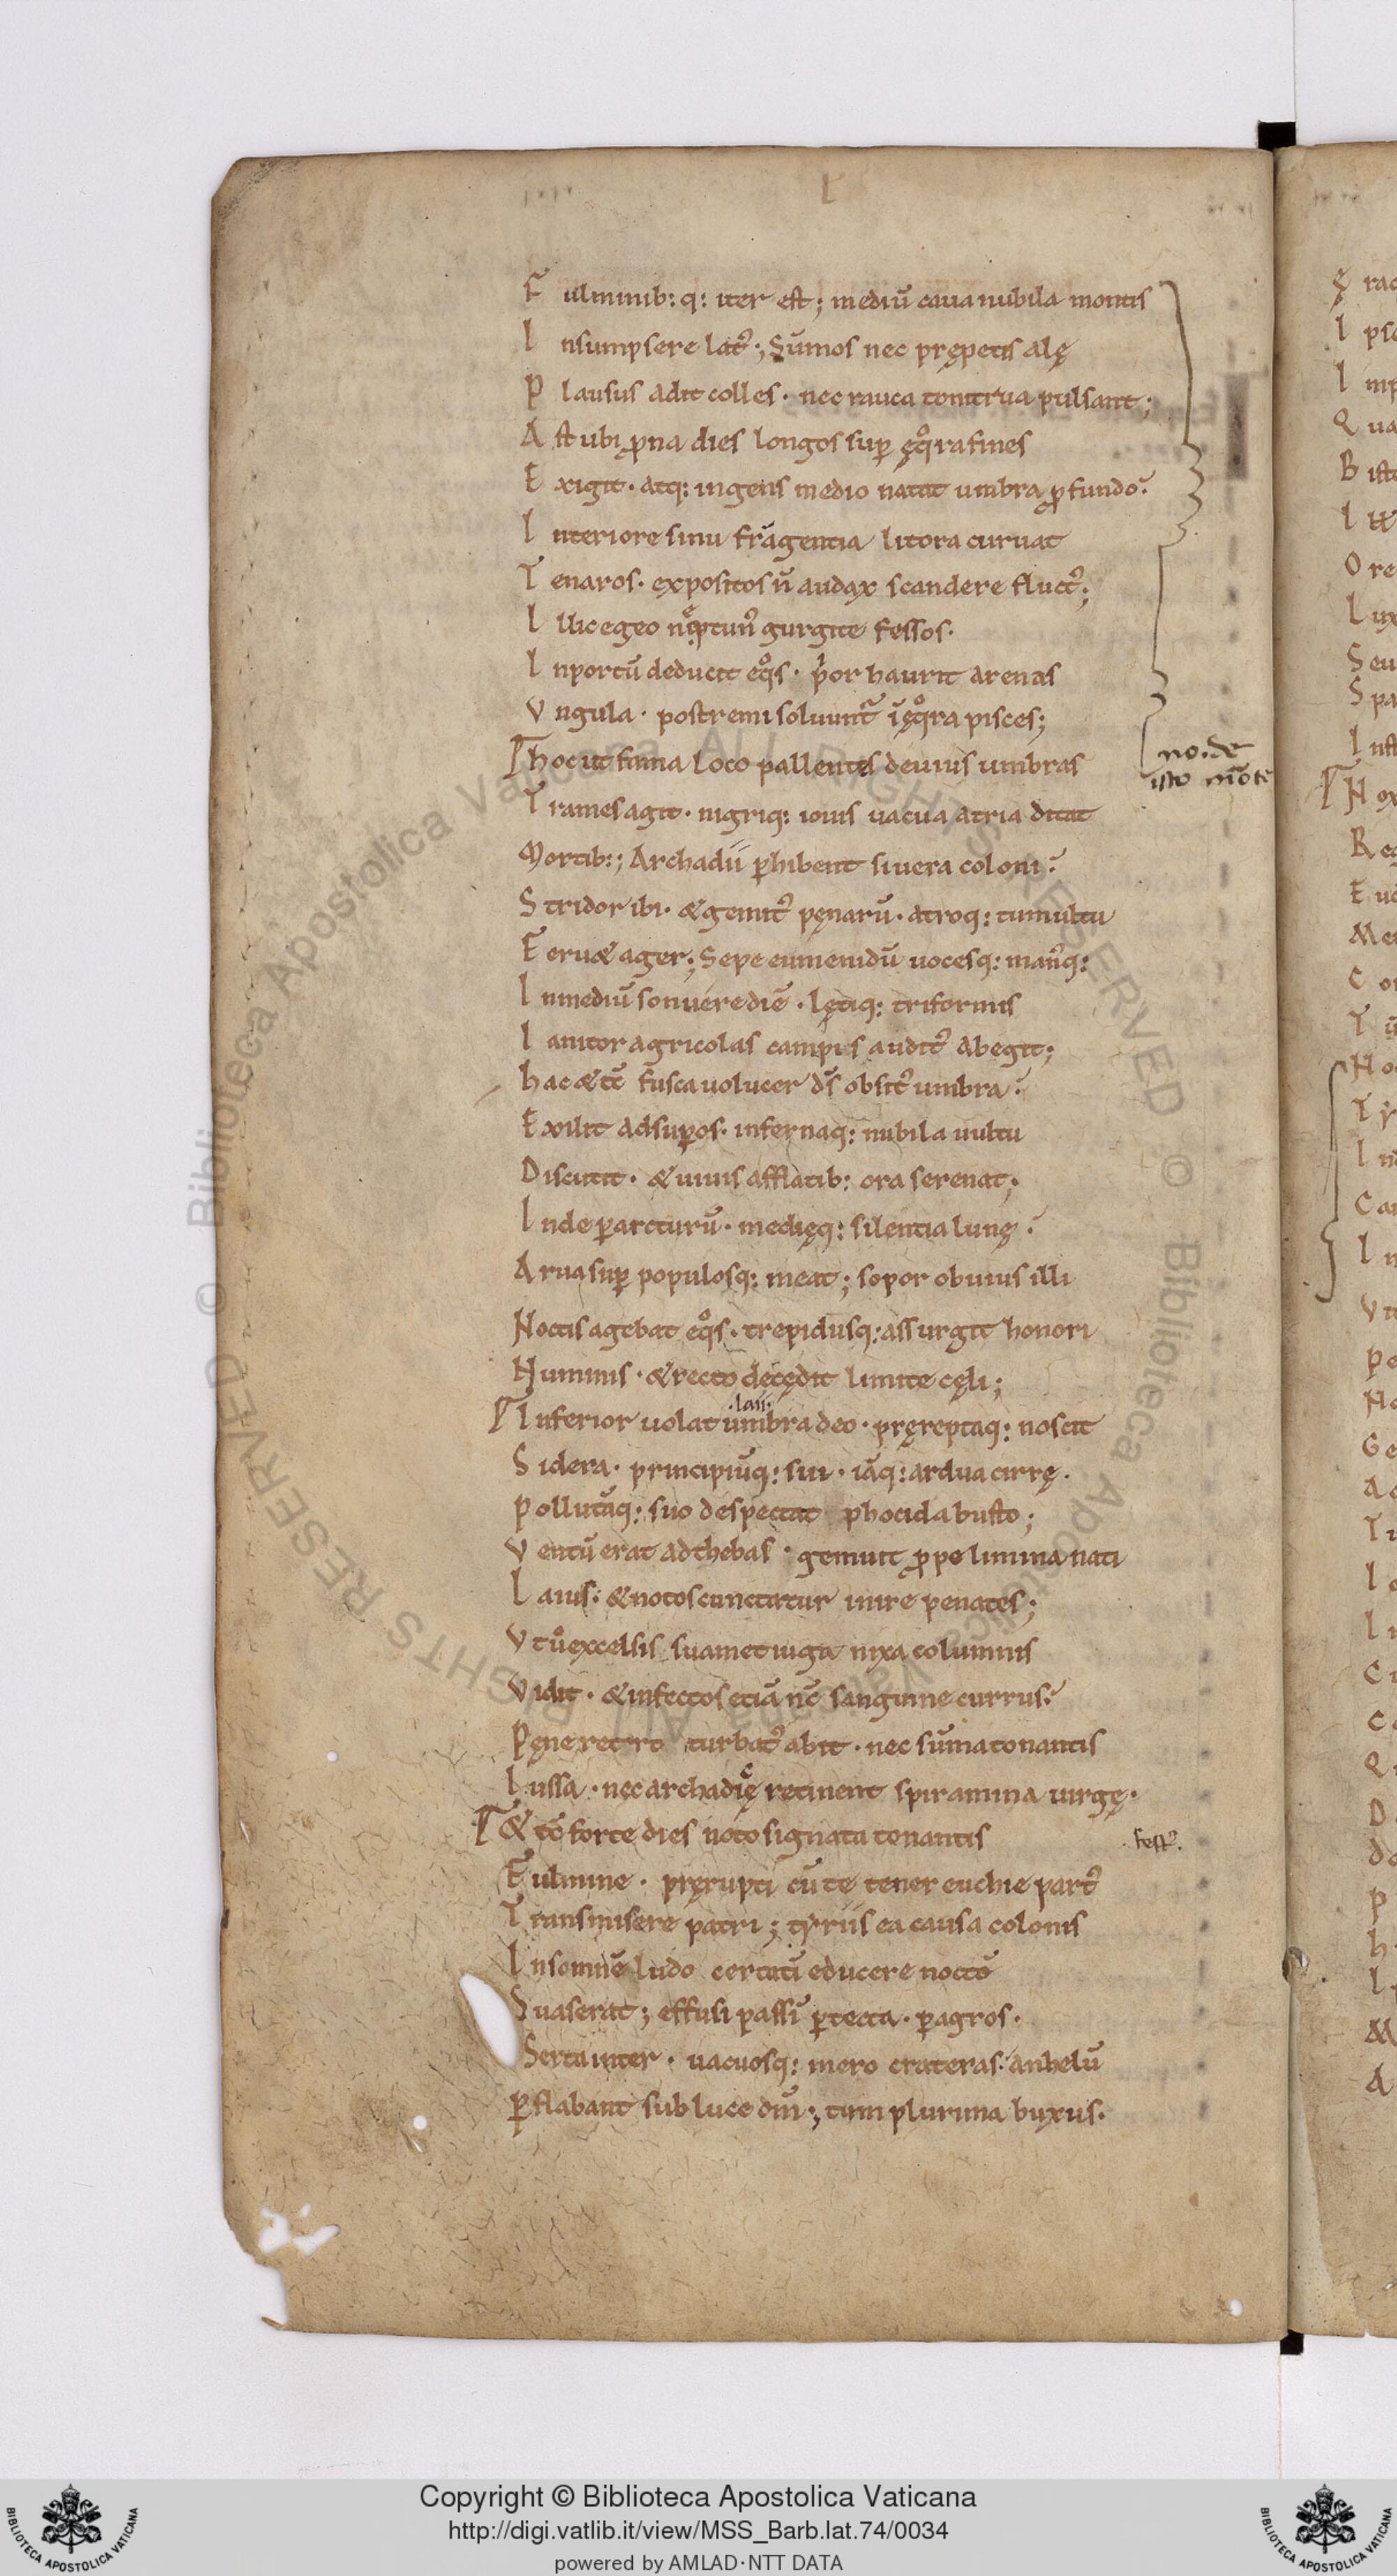 F ulminib: q: iter est; mediū caua nubila montis
I nsumpsere lat᾽; Sūmos nec prępetis alę
P lausus adit colles · nec rauca tonitrua pulsant;
A st ubi ꝓna dies longos suꝑ ęqͦra fines
E xigit · atq: ingens medio natat umbra ꝓfundo·
I nteriore sinu frāgentia litora curuat
T enaros · expositos n̄ audax scandere fluct᾽;
I llic egeo neptun᾽ gurgite fessos·
I n portū deducit eqͦs · pͥor haurit arenas
V ngula · postremi soluunt᾽ ī ęqͦra pisces;
hoc ut fama loco pallentes deuius umbras
T rames agit · nigriq: iouis uacua atria ditat
Mortib:; Archadii ꝑhibent si uera coloni·
S tridor ibi · & gemit᾽ pęnarū · atroq: tumultu
F eru& ager; Sepe eumenidū uocesq: man᾽q:
I n mediū sonuere diē · lętiq: triformis
I anitor agricolas campis audit᾽ abegit;
hac & tc̄ fusca uolucer ds̄ obsit᾽ umbra·
Exilit ad suꝑos · infernaq: nubila uultu
Discutit · & uiuis afflatib: ora serenat;
I nde ꝑ arcturū · medięq: silentia lunę·
A rua suꝑ populosq: meat; sopor obuius illi
Noctis agebat eqͦs · trepidusq: assurgit honori
Numinis · & recto decędit limite cęli;
·laii·
Inferior uolat umbra deo · pręreptaq: noscit
S idera · principiūq: sui · iāq: ardua cirrę·
Pollutāq: suo despectat phocida busto;
V entū erat ad thebas · gemuit ꝓpe limina nati
L aius · & notos cunctatur inire penates;
V t uͦ excelsis suamet iuga nixa columnis
Vidit · & infectos etiā nc̄ sanguine currus·
Pęne retro turbat᾽ abit · nec sūma tonantis
I ussa · nec archadię retinent spiramina uirgę·
& tc̄ forte dies noto signata tonantis
fest᾽·
Fulmine · prerupti cū te tener euchie part᾽
T ransmisere patri; tyriis ea causa colonis
I nsomnē ludo certatī educere noctē
Suaserat; effusi passī ꝑ tecta · ꝑ agros·
Serta inter · uacuosq: mero crateras · anhelū
ꝑflabant sub luce dm̄; tum plurima buxus·
no. de
isto mōte